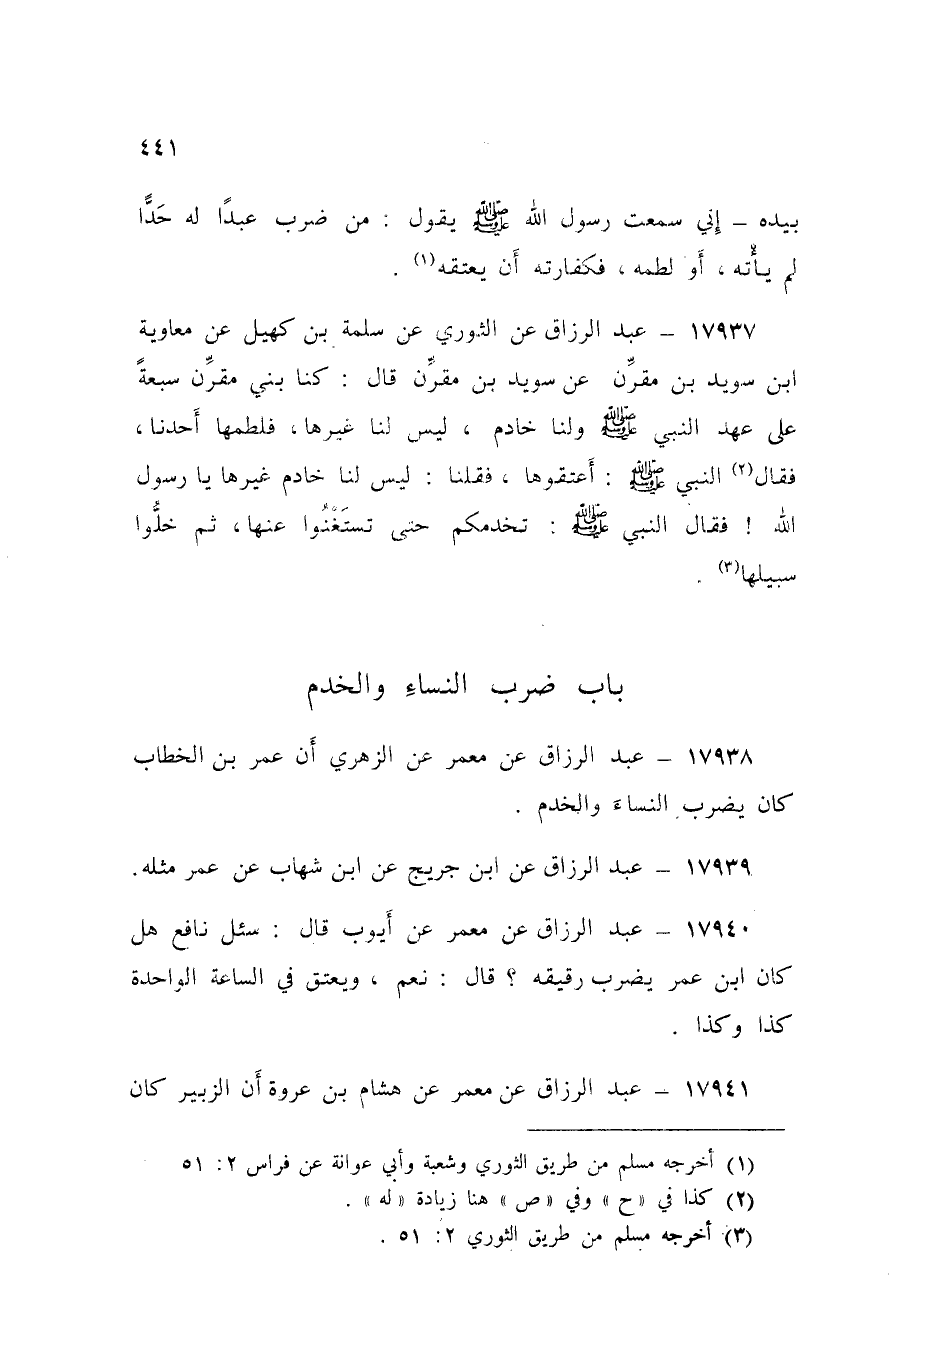 ٤٤١
بيده – إني سمعت رسول الله ﷺ يقول : من ضرب عبدًا له حَدًّا
لم يأْته ، أَو لطمه ، فكفارته أَن يعتقه(١) .
١٧٩٣٧ – عبد الرزاق عن الثوري عن سلمة بن كهيل عن معاوية
ابن سويد بن مقرِّن عن سويد بن مقرِّن قال : كنا بني مقرِّن سبعةً
على عهد النبي ﷺ ولنا خادم ، ليس لنا غيرها ، فلطمها أَحدنا ،
فقال(٢) النبي ﷺ : أَعتقوها ، فقلنا : ليس لنا خادم غيرها يا رسول
الله ! فقال النبي ﷺ : تخدمكم حتى تستَغْنُوا عنها ، ثم خلُّوا
سبيلها(٣) .
باب ضرب النساءِ والخدم
١٧٩٣٨ – عبد الرزاق عن معمر عن الزهري أَن عمر بن الخطاب
كان يضرب النساءَ والخدم .
١٧٩٣٩ – عبد الرزاق عن ابن جريج عن ابن شهاب عن عمر مثله.
١٧٩٤٠ – عبد الرزاق عن معمر عن أَيوب قال : سئل نافع هل
كان ابن عمر يضرب رقيقه ؟ قال : نعم ، ويعتق في الساعة الواحدة
كذا وكذا .
١٧٩٤١ – عبد الرزاق عن معمر عن هشام بن عروة أَن الزبير كان
(١) أخرجه مسلم من طريق الثوري وشعبة وأبي عوانة عن فراس ٢: ٥١
(٢) كذا في « ح » وفي « ص » هنا زيادة « له » .
(٣) أخرجه مسلم من طريق الثوري ٢: ٥١ .